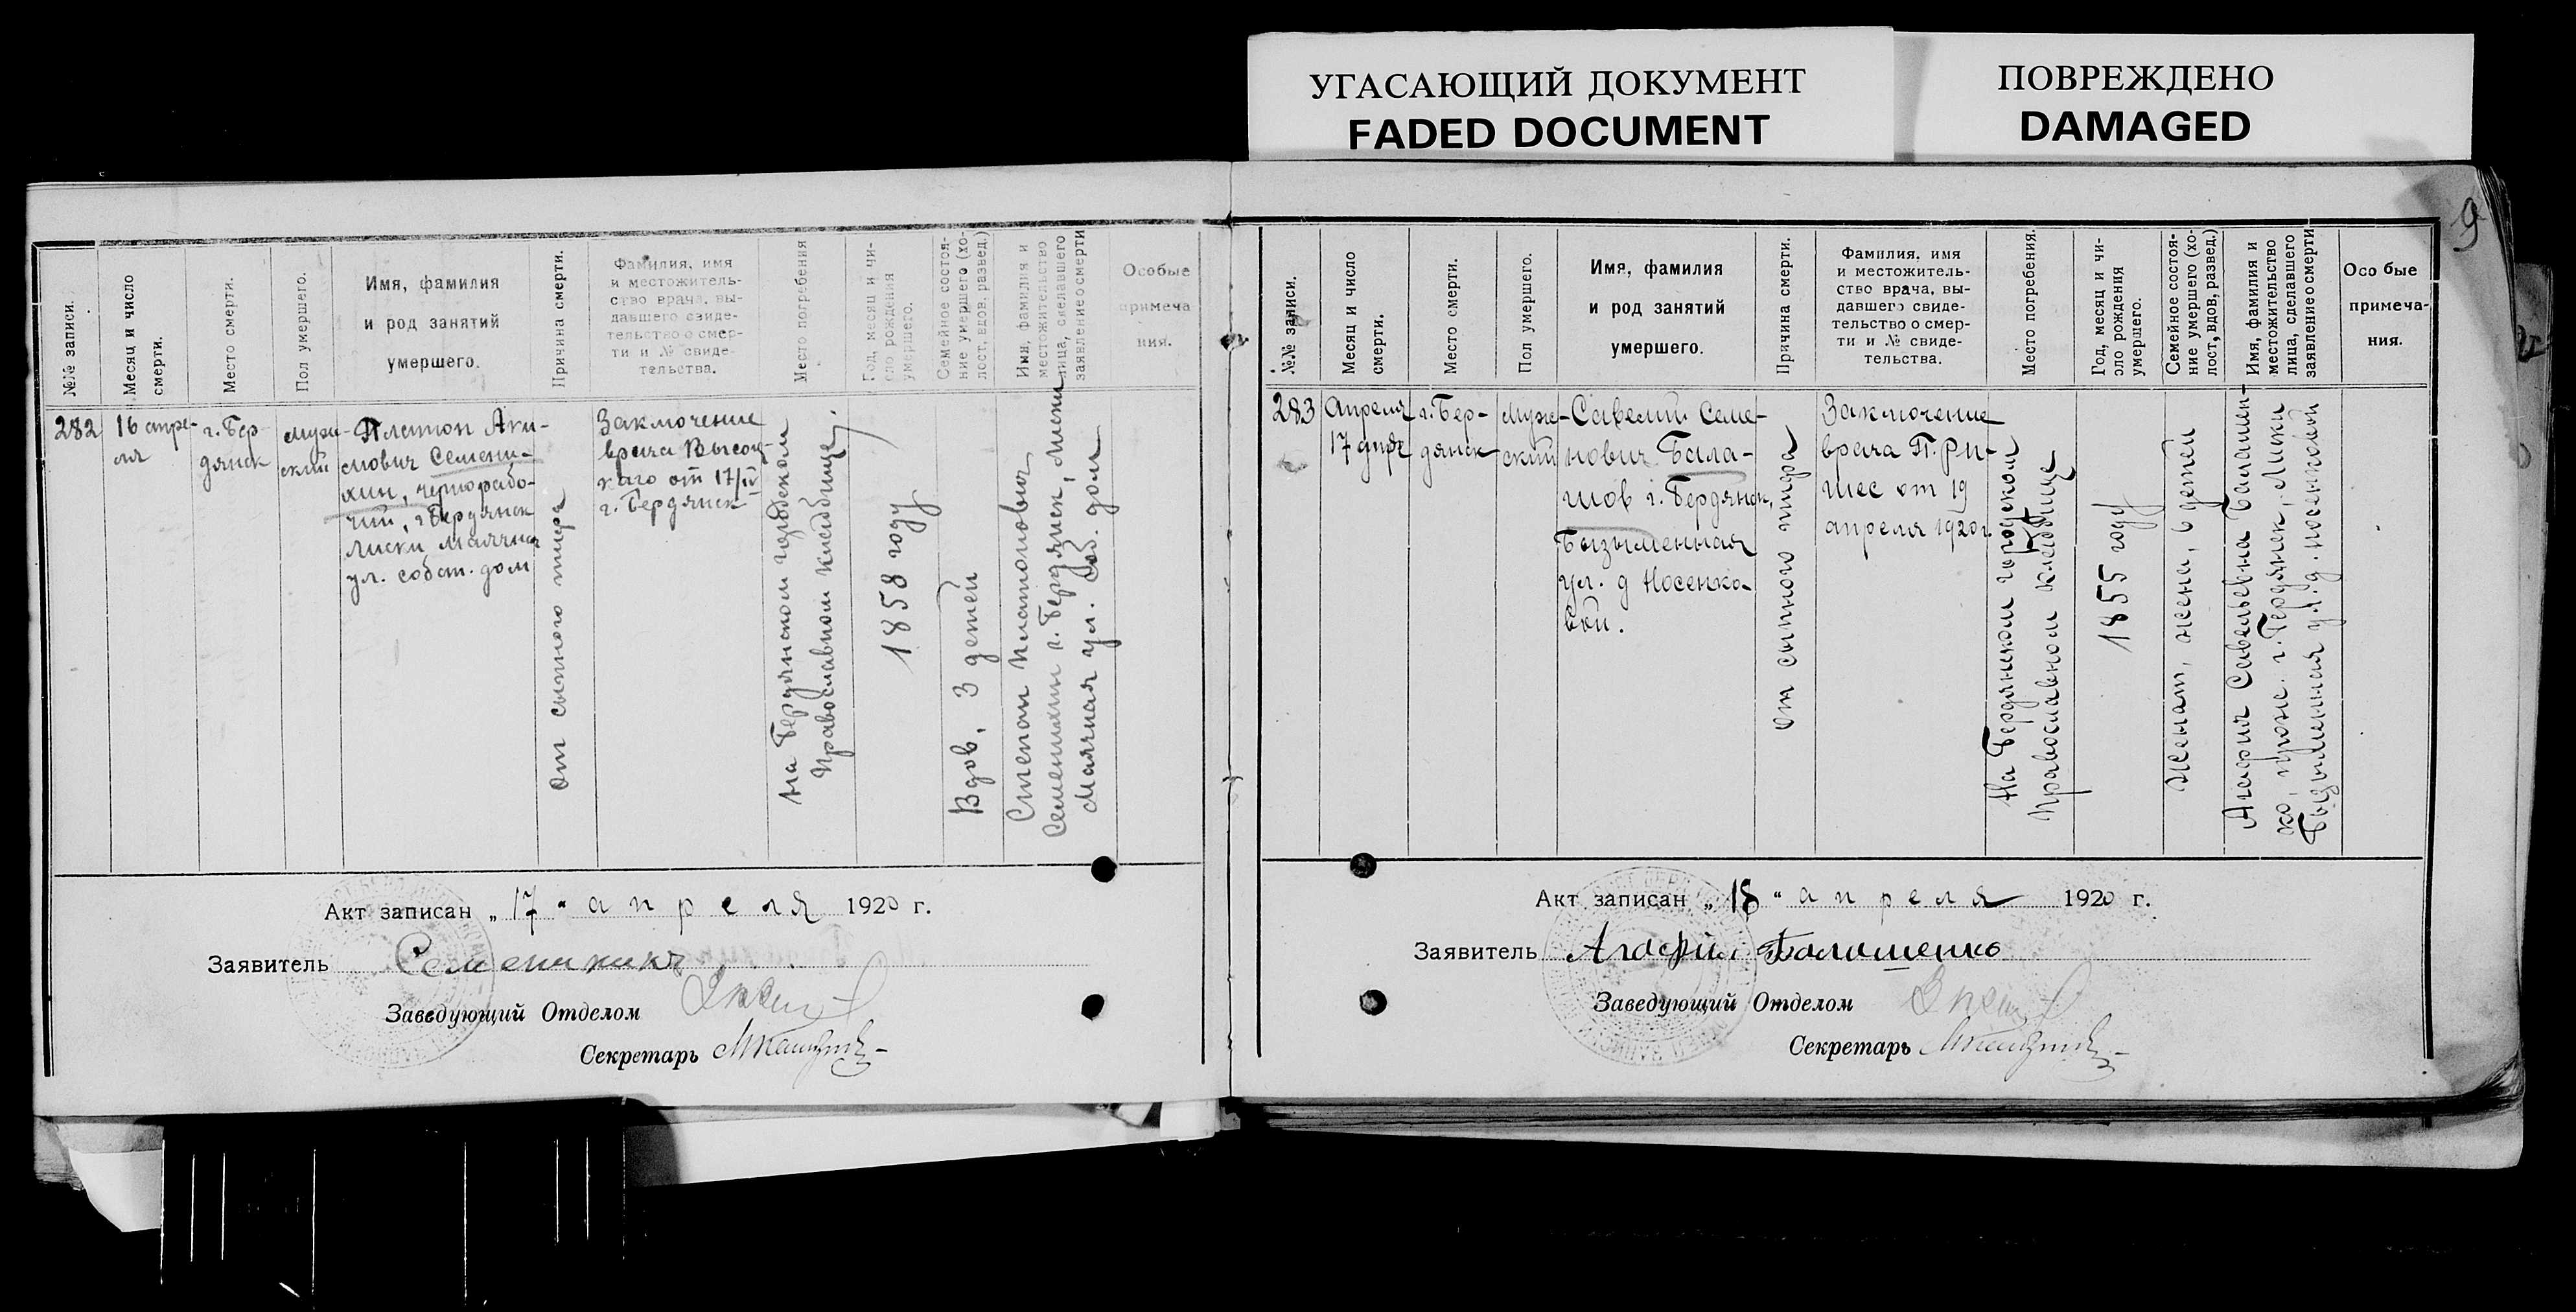 УГАСАЮЩИЙ ДОКУМЕНТ
FADED DOCUMENT
ПОВРЕЖДЕНО
DAMAGED
9
№№ записи.
Месяц и число
смерти.
Место смерти.
Пол умершего.
Имя, фамилия
и род занятий
умершего.
Причина смерти.
Фамилия, имя
и местожитель-
ство врача, вы-
давшего свиде-
тельство о смер-
ти и № свиде-
тельства.
Место погребения
Год, месяц и чи-
сло рождения
умершего.
Семейное состоя-
ние умершего (хо-
лост, вдов, развед.)
Имя, фамилия и
местожительство
лица, сделавшего
заявление о смерти
Особые
примеча
ния.
282
16 апре-
ля
г. Бер-
дянск
Муж-
ский
Платон Аки-
мович Семени-
хин, чернорабо-
чий, г. Бердянск
Лиски, Маячная
ул. собст. дом
От сыпного тифа
Заключение
врача Высоц-
каго от 17/IV
г. Бердянск
На Бердянском городском
Православном кладбище
1858 году
Вдов, 3 детей
Степан Платонович
Семенихин г. Бердянск, Лиски,
Маячная ул. соб. дом
Акт записан „ 17 " апреля 1920 г.
Заявитель Семенихин
Заведующий Отделом
Секретарь
№№ записи.
Месяц и число
смерти.
Место смерти.
Пол умершего.
Имя, фамилия
и род занятий
умершего.
Причина смерти.
Фамилия, имя
и местожитель-
ство врача, вы-
давшего свиде-
тельство о смер-
ти и № свиде-
тельства.
Место погребения.
Год, месяц и чи-
эло рождения
умершего.
Семейное состоя-
ние умершего (хо-
лост, вдов, развед.)
Имя, фамилия и
местожительство
лица, сделавшего
заявление о смерти
Осо бые
примеча-
ния.
283
Апреля
17 дня
г. Бер-
дянск
Муж-
ский
Савелий Семе-
нович Бала-
шов г. Бердянск,
Безыменная
ул. д Носенко-
вой.
От сыпного тифа
Заключение
врача П. Ри-
шес от 19
апреля 1920 г
На Бердянском городском
Православном кладбище
1855 году
Женат, жена, 6 детей
Агафия Савельевна Балашен-
ко, прож. г. Бердянск, Лиски
Безыменная ул. д. Носенковой
Акт записан „ 18 " апреля 1920 г.
Заявитель Агафия Балашенко
Заведующий Отделом
Секретарь